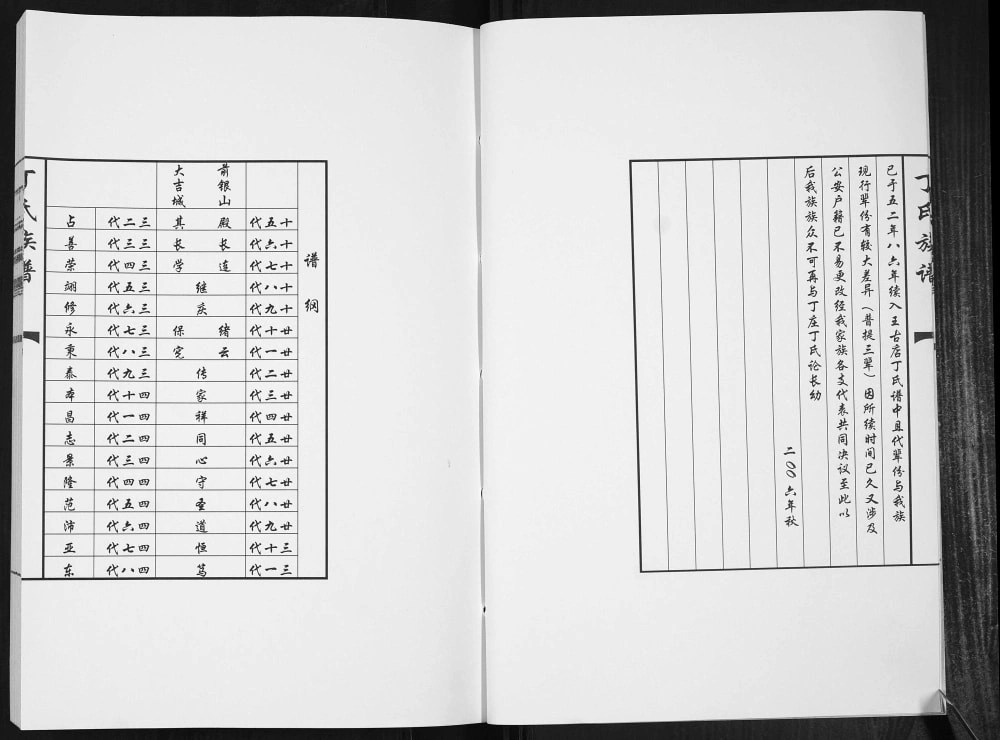 丁氏族谱
已于五二年八六年续入王古店丁氏谱中且代辈份与我族
现行辈份有较大差异（普提三辈）因所续时间已久又涉及
公安户籍已不易更改经我家族各支代表共同决议至此以
后我族族众不可再与丁庄丁氏论长幼
二〇〇六年秋
谱纲
前银山 大吉城
十五代 殿 其
十六代 长 长
十七代 连 学
十八代 继
十九代 庆
廿十代 绪 保
廿一代 云 宪
廿二代 传
廿三代 家
廿四代 祥
廿五代 同
廿六代 心
廿七代 守
廿八代 圣
廿九代 道
三十代 恒
三一代 笃
三二代 占
三三代 善
三四代 荣
三五代 翊
三六代 修
三七代 永
三八代 秉
三九代 泰
四十代 本
四一代 昌
四二代 志
四三代 景
四四代 隆
四五代 范
四六代 沛
四七代 亚
四八代 东
丁氏族谱